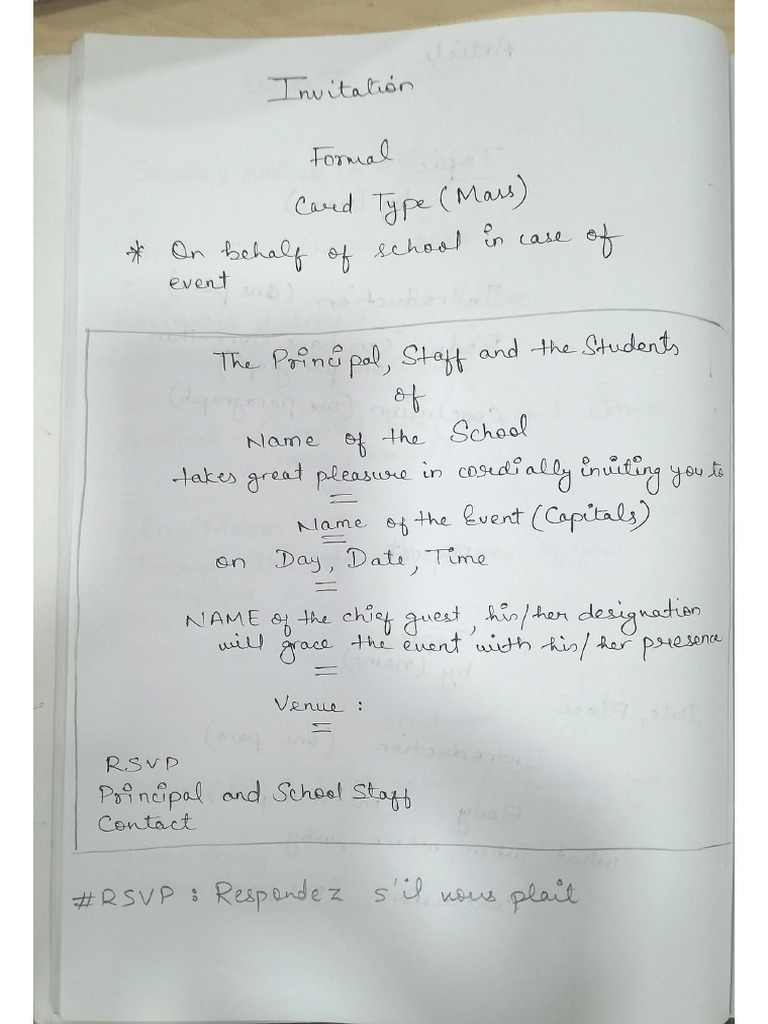 Invitation
Formal
Card Type (Mass)
* On behalf of school in case of
event
The Principal, Staff and the Students
of
Name of the School
takes great pleasure in cordially inviting you to
Name of the Event (Capitals)
on Day, Date, Time
NAME of the chief guest, his/her designation
will grace the event with his/her presence
Venue :
RSVP
Principal and School Staff
Contact
#RSVP : Respondez s'il nous plait